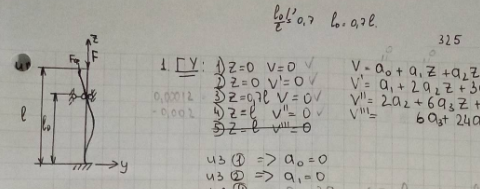 l₀/l = 0,7 l₀ = 0,7l.
325
z
F
F
l
l₀
y
1. ГУ:
1) z=0 V=0
2) z=0 V'=0
3) z=0,7l V=0
4) z=l V''=0
5) z=l V'''=0
0,00012
-0,002
V = a₀ + a₁z + a₂z
V' = a₁ + 2a₂z + 3
V'' = 2a₂ + 6a₃z +
V''' = 6a₃ + 24a
из ① => a₀ = 0
из ② => a₁ = 0